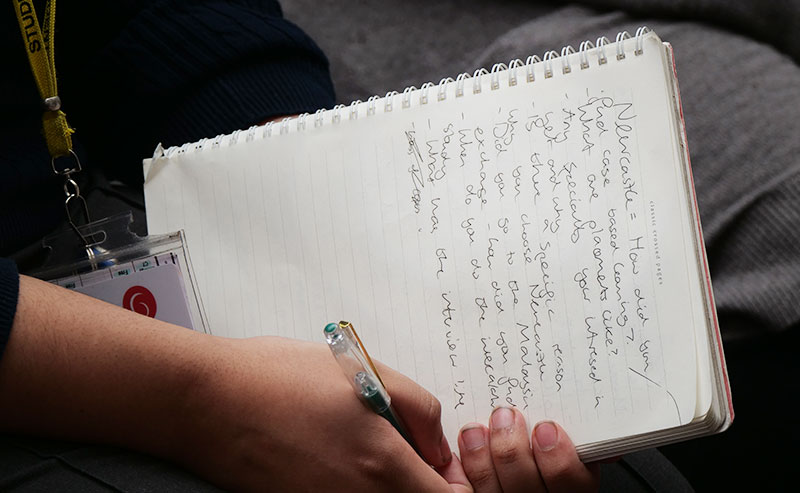 STUD
classic crossed pages
Newcastle = How did you
find case based learning?
- What are placements like?
- Any specialities your intresed in
yet and why
- Is there a specific reason
why you choose Newcastle
- Did you go to the Malaysia
exchange - how did you find
- When do you do the
study
- What was the interview like